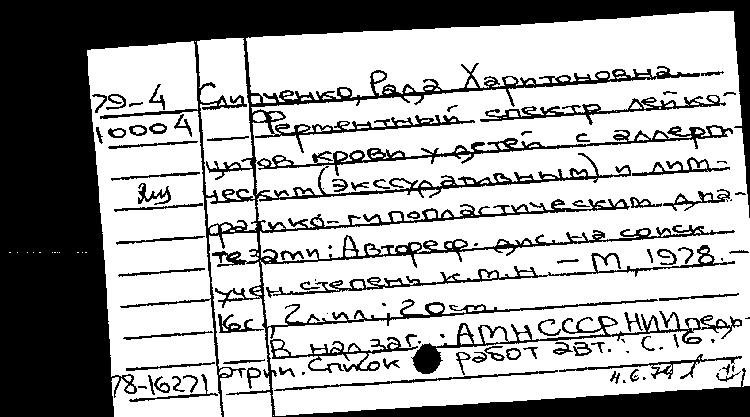 79-4 Слипченко, Рада Харитоновна.
10004 Ферментный спектр лейко-
цитов крови у детей с аллерги-
ческим (экссудативным) и лим-
фатико-гипопластическим диа-
тезами: Автореф. дис. на соиск.
учен. степень к.м.н. – М., 1978. –
16с., 2 л.ил.; 20 см.
В надзаг.: АМН СССР, НИИ педи-
атрии. Список работ авт.: с. 16.
78-16271
4.6.79